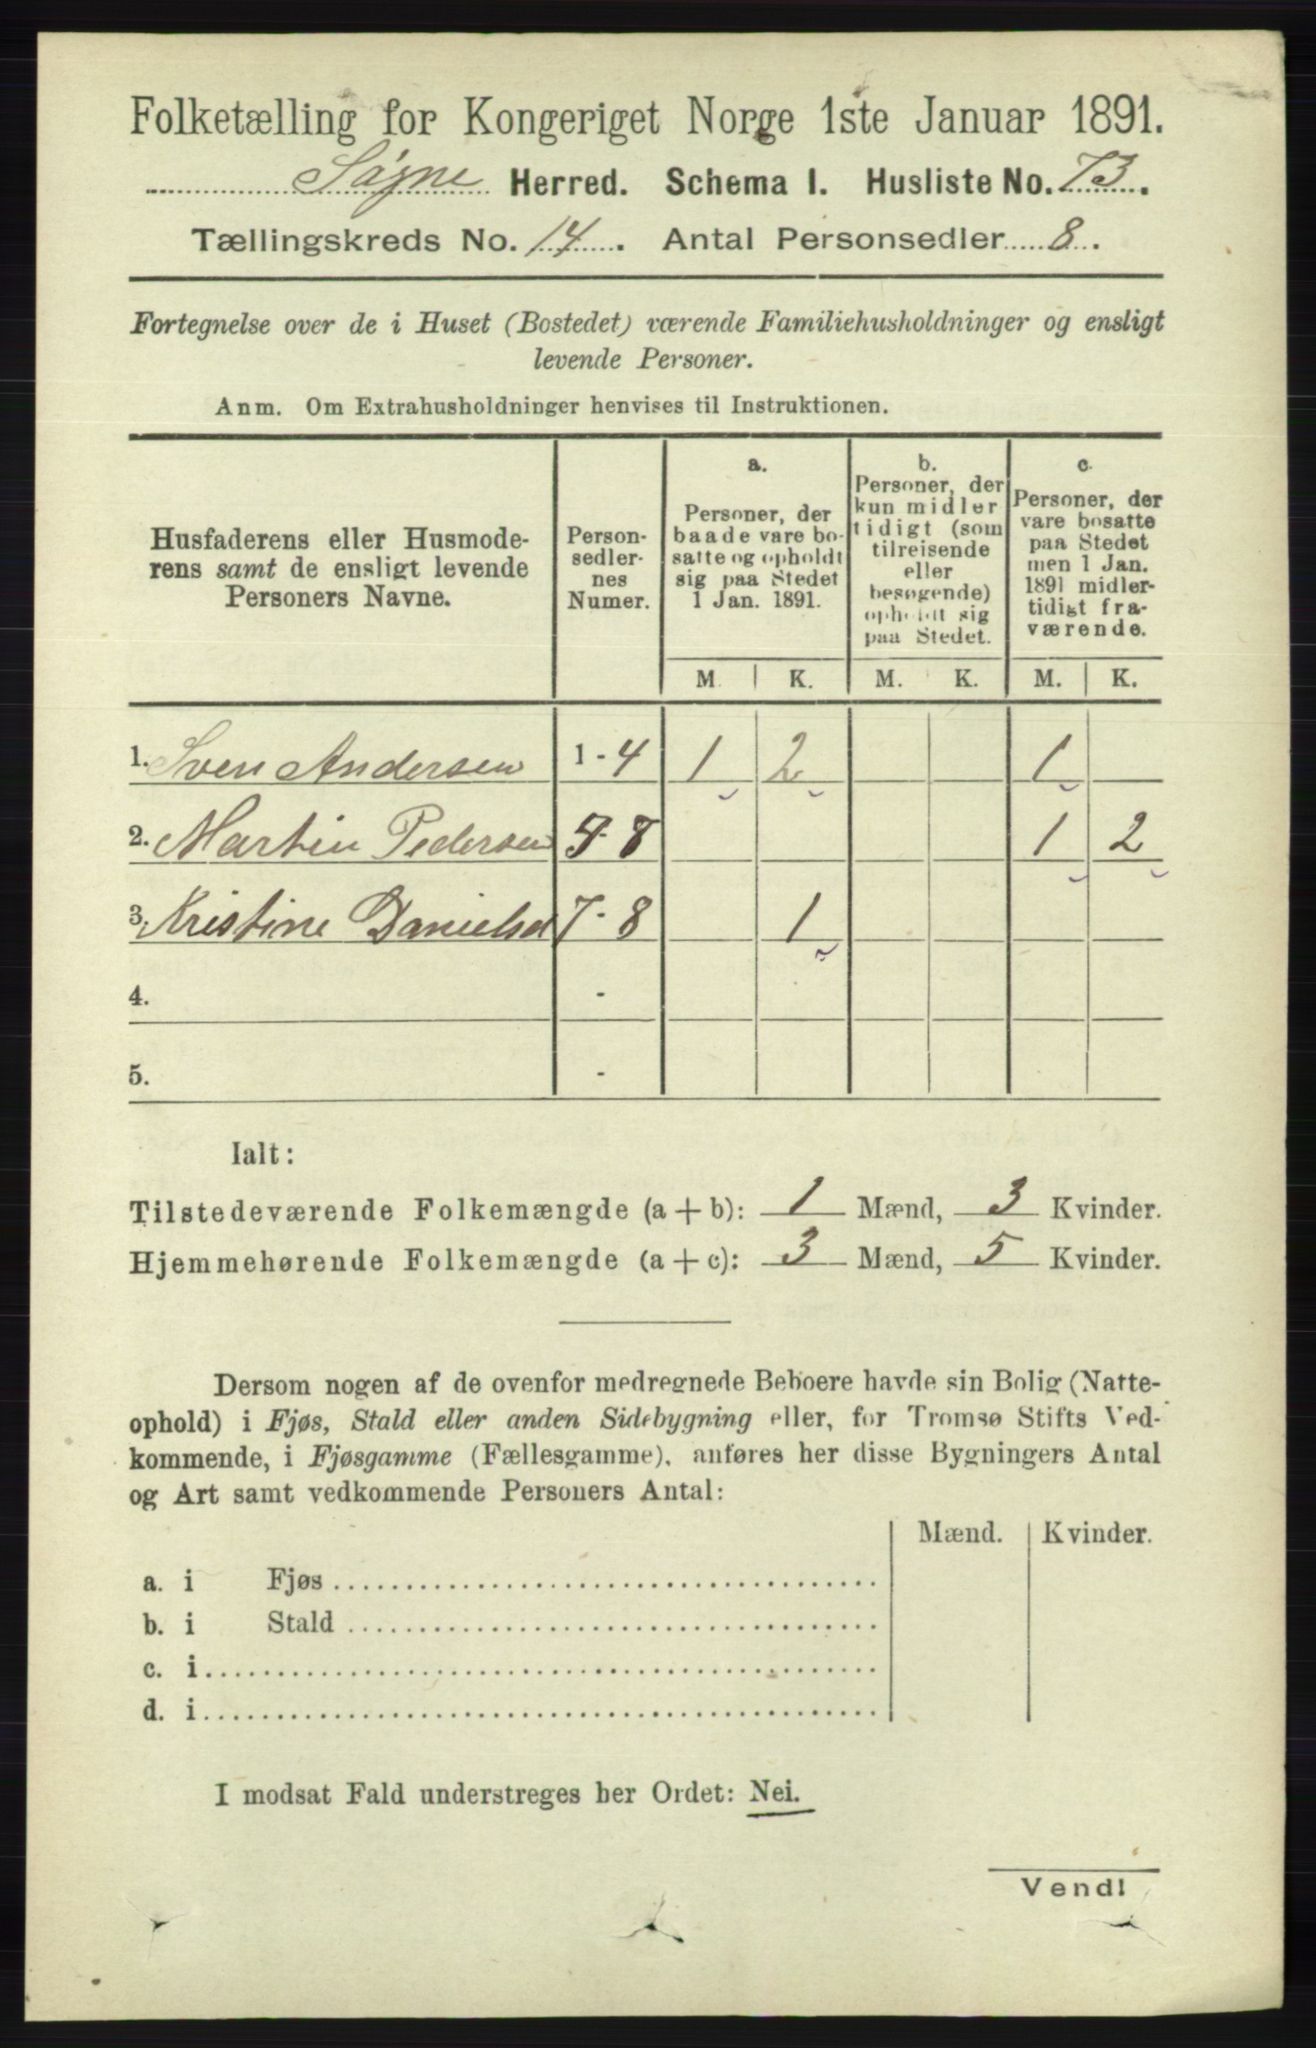 Folketælling for Kongeriget Norge 1ste Januar 1891.
Søgne Herred. Schema I. Husliste No. 73.
Tællingskreds No. 14. Antal Personsedler 8.
Fortegnelse over de i Huset (Bostedet) værende Familiehusholdninger og ensligt
levende Personer.
Anm. Om Extrahusholdninger henvises til Instruktionen.
Husfaderens eller Husmode-
rens samt de ensligt levende
Personers Navne.
Person-
sedler-
nes
Numer.
a.
Personer, der
baade vare bo-
satte og opholdt
sig paa Stedet
1 Jan. 1891.
b.
Personer, der
kun midler
tidigt (som
tilreisende
eller
besøgende)
opholdt sig
paa Stedet.
c.
Personer, der
vare bosatte
paa Stedet
men 1 Jan.
1891 midler-
tidigt fra-
værende.
M. K. M. K. M. K.
1. Sven Andersen 1 - 4 1 2 1
2. Martin Pedersen 5-8 1 2
3. Kristine Danielsd 7-8 1
4. -
5. -
Ialt:
Tilstedeværende Folkemængde (a + b): 1 Mænd, 3 Kvinder.
Hjemmehørende Folkemængde (a + c): 3 Mænd, 5 Kvinder.
Dersom nogen af de ovenfor medregnede Beboere havde sin Bolig (Natte-
ophold) i Fjøs, Stald eller anden Sidebygning eller, for Tromsø Stifts Ved-
kommende, i Fjøsgamme (Fællesgamme), anføres her disse Bygningers Antal
og Art samt vedkommende Personers Antal:
Mænd. Kvinder.
a. i Fjøs
b. i Stald
c. i
d. i
I modsat Fald understreges her Ordet: Nei.
Vend!